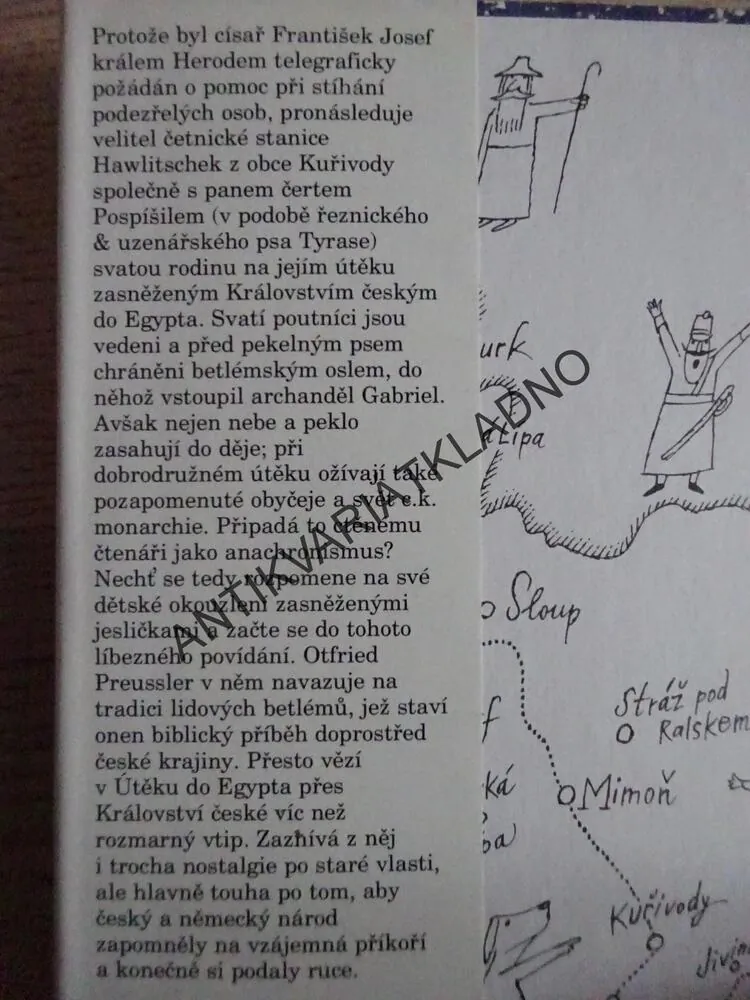 Protože byl císař František Josef
králem Herodem telegraficky
požádán o pomoc při stíhání
podezřelých osob, pronásleduje
velitel četnické stanice
Hawlitschek z obce Kuřivody
společně s panem čertem
Pospíšilem (v podobě řeznického
& uzenářského psa Tyrase)
svatou rodinu na jejím útěku
zasněženým Královstvím českým
do Egypta. Svatí poutníci jsou
vedeni a před pekelným psem
chráněni betlémským oslem, do
něhož vstoupil archanděl Gabriel.
Avšak nejen nebe a peklo
zasahují do děje; při
dobrodružném útěku ožívají také
pozapomenuté obyčeje a svět c.k.
monarchie. Připadá to ctěnému
čtenáři jako anachronismus?
Nechť se tedy rozpomene na své
dětské okouzlení zasněženými
jesličkami a začte se do tohoto
líbezného povídání. Otfried
Preussler v něm navazuje na
tradici lidových betlémů, jež staví
onen biblický příběh doprostřed
české krajiny. Přesto vězí
v Útěku do Egypta přes
Království české víc než
rozmarný vtip. Zaznívá z něj
i trocha nostalgie po staré vlasti,
ale hlavně touha po tom, aby
český a německý národ
zapomněly na vzájemná příkoří
a konečně si podaly ruce.
ANTIKVARIATKLADNO
urk
a Lípa
Sloup
Stráž pod
Ralskem
f
ká
Mimoň
ba
Kuřivody
Jivin